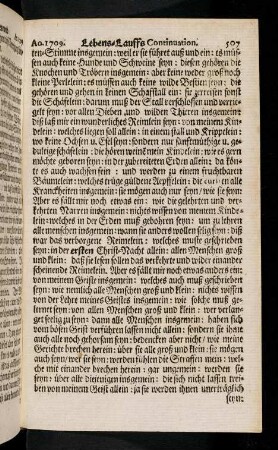 Ao. 1709. Lebens-Lauffs Continuation. 507
ten-Stimme insgemein: weil er sie führet auß und ein: es müs-
sen auch keine Hunde und Schweine seyn: diesen gehören die
Knochen und Tröbern insgemein: aber keine weder groß noch
kleine Perlelein: es müssen auch keine wilde Bestien seyn: die
gehören und gehen in keinen Schaffstall ein: sie zerreissen sonst
die Schäfelein: darum muß der Stall verschlossen und verrie-
gelt seyn: vor allen Dieben und Wilden Thieren insgemein:
diß laß mir ein wunderliches Reimlein seyn: von meinem Kin-
delein: welches will gehören sein allein: in einem stall und Krippelein:
wo keine Ochsen u. Esel seyn: sondern nur sanftmüthige u. ge-
dultige Schäfelein: die hören wie mein Kindelein: wo es gern
möchte geboren seyn: in der zubereiteten Erden allein: da kön-
te es auch wachsen fein: und werden zu einem fruchtbaren
Bäumelein: welches trüge güldene Aepffelein: die in alle
Kranckheiten insgemein: sie mögen auch nur seyn: wie sie seyn:
Aber es fällt mir noch etwas ein: wie die gelehrten und ver-
kehrten Narren insgemein: nichts wissen von meinem Kinde-
lein: welches in der Erden muß gebohren seyn: um zu lehren
alle menschen insgemein: wann sie anders wollen selig seyn: diß
ist nun das verborgene Reimelein: welches muste geschrieben
seyn: in der ersten Christ-Nacht allein: allen Menschen groß
und klein: daß sie lesen sollen das verkehrte und wider einander
scheinende Reimelein. Aber es fällt mir noch etwas anders ein:
von meinem Geiste insgemein: welches auch muß geschrieben
seyn: wie nemlich alle Menschen groß und klein: nichts wissen
von der Lehre meines Geistes insgemein: wie solche muß ge-
lernet seyn: von allen Menschen groß und klein: wer verlan-
get seelig zu seyn: dann alle Menschen insgemein: haben sich
vom bösen Geist verführen lassen nicht allein: sondern sie thun
auch alle noch gehorsam seyn: bedencken aber nicht, wie meine
Gerichte brechen herein: über sie alle groß und klein: sie mögen
auch seyn, wer sie seyn: werden fühlen die Straffen mein: wel-
che mit einander brechen herein: gar ungemein: werden sie
seyn: über alle dieienigen insgemein: die sich nicht lassen wei-
sen von meinem Geist allein: ja sie werden ihnen unerträglich
seyn: